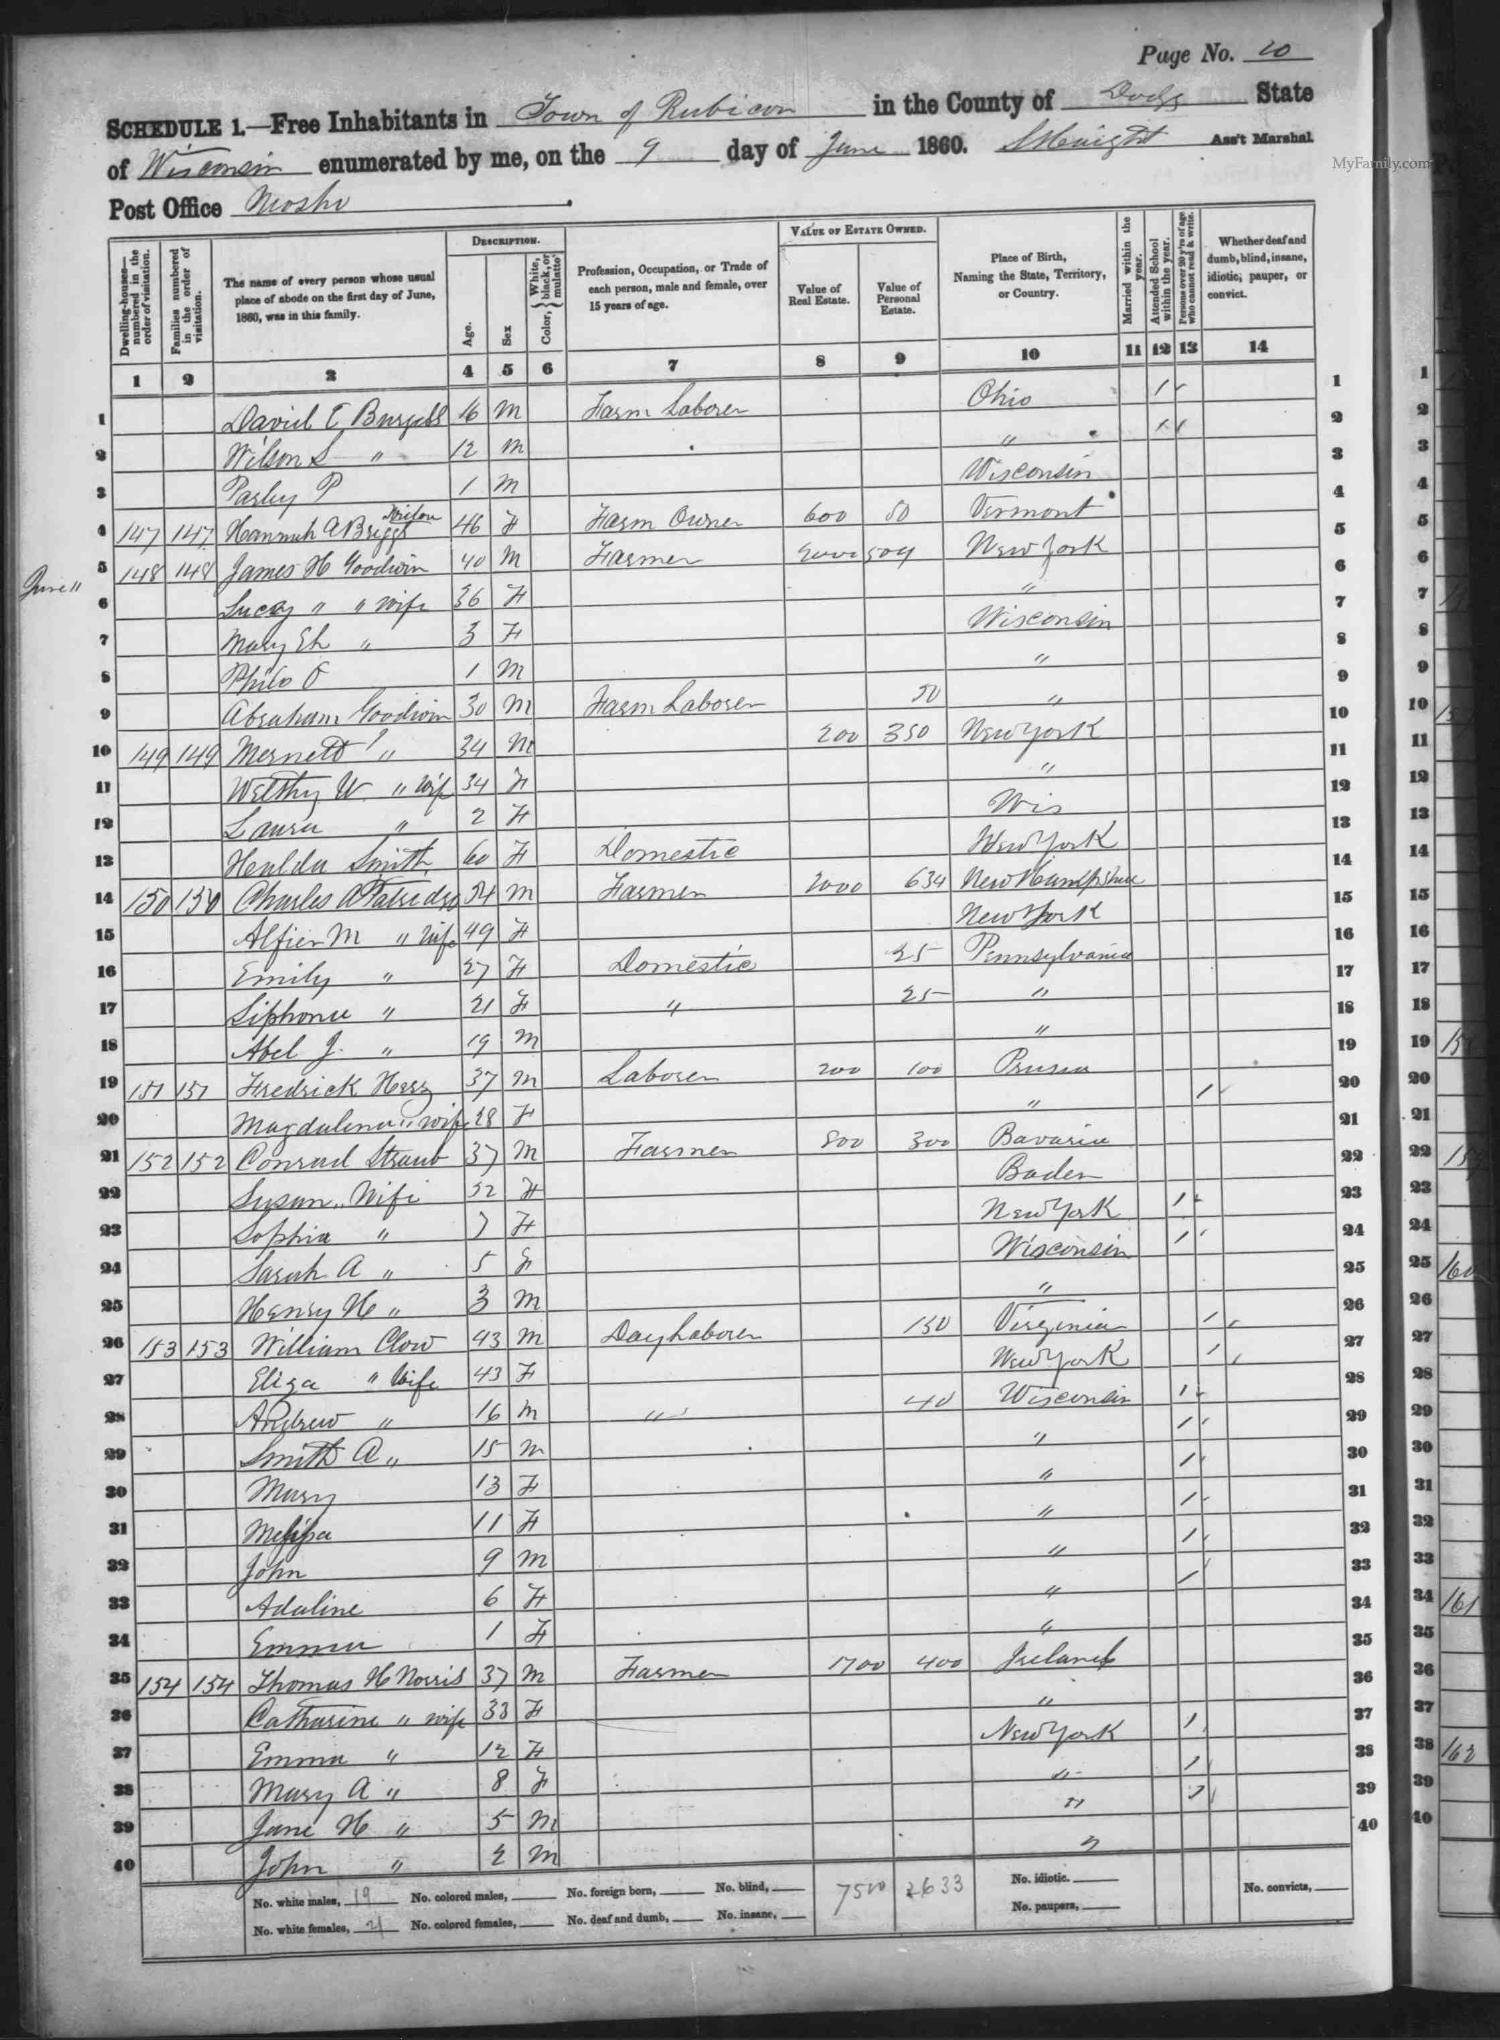 Page No. 20
SCHEDULE 1.—Free Inhabitants in Town of Rubicon in the County of Dodge State
of Wisconsin enumerated by me, on the 9 day of June 1860. Ass't Marshal
MyFamily.com
Post Office
Dwelling-houses—numbered in the order of visitation.
Families numbered in the order of visitation.
The name of every person whose usual place of abode on the first day of June, 1860, was in this family.
DESCRIPTION.
Age.
Sex
Color, { White, black, or mulatto
Profession, Occupation, or Trade of each person, male and female, over 15 years of age.
VALUE OF ESTATE OWNED.
Value of Real Estate.
Value of Personal Estate.
Place of Birth, Naming the State, Territory, or Country.
Married within the year.
Attended School within the year.
Persons over 20 y'rs of age who cannot read & write.
Whether deaf and dumb, blind, insane, idiotic, pauper, or convict.
1 2 3 4 5 6 7 8 9 10 11 12 13 14
1 David E Burgess 16 M Farm Laborer Ohio 1 1
2 Wilson S " 12 M " 1 2
3 Parley P 1 M Wisconsin 3
4 147 147 Hannah A Briggs Widow 46 F Farm Owner 600 50 Vermont 4
June 11
5 148 148 James H Goodwin 40 M Farmer 504 New York 5
6 Lucy " " wife 36 F " 6
7 Mary " 3 F Wisconsin 7
8 Philo 1 M " 8
9 Abraham Goodwin 30 M Farm Laborer 50 " 9
10 149 149 " 34 M 200 350 New York 10
11 Welthy W. " Wife 34 F " 11
12 Laura " 2 F Wis 12
13 Hulda Smith 60 F Domestic New York 13
14 150 150 Charles A Patridge 54 M Farmer 2000 634 New Hampshire 14
15 M " Wife 49 F New York 15
16 Emily " 27 F Domestic 25 Pennsylvania 16
17 Siphona " 21 F " 25 " 17
18 Abel J. " 19 M " 18
19 151 151 Fredrick 37 M Laborer 200 100 Prusia 19
20 Magdalena " wife 28 F " 1 20
21 152 152 Conrad Straub 37 M Farmer 800 300 Bavaria 21
22 Susan " Wife 32 F Baden 22
23 Sophia " 7 F New York 1 23
24 Sarah A " 5 F Wisconsin 1 24
25 Henry H " 3 M " 25
26 153 153 William Clow 43 M Day Laborer 150 Virginia 1 26
27 Eliza " Wife 43 F New York 1 27
28 Andrew " 16 M " 40 Wisconsin 1 28
29 Smith A " 15 M " 1 29
30 Mary 13 F " 1 30
31 Melissa 11 F " 1 31
32 John 9 M " 1 32
33 Adaline 6 F " 1 33
34 Emma 1 F " 34
35 154 154 Thomas H Norris 37 M Farmer 1700 400 Ireland 35
36 Catharine " wife 33 F " 36
37 Emma " 12 F New York 1 37
38 Mary A " 8 F " 1 38
39 Jane H " 5 M " 1 39
40 John " 2 M " 40
No. white males, 19 No. colored males, No. foreign born, No. blind, 7500 2633 No. idiotic. No. convicts,
No. white females, 21 No. colored females, No. deaf and dumb, No. insane, No. paupers,